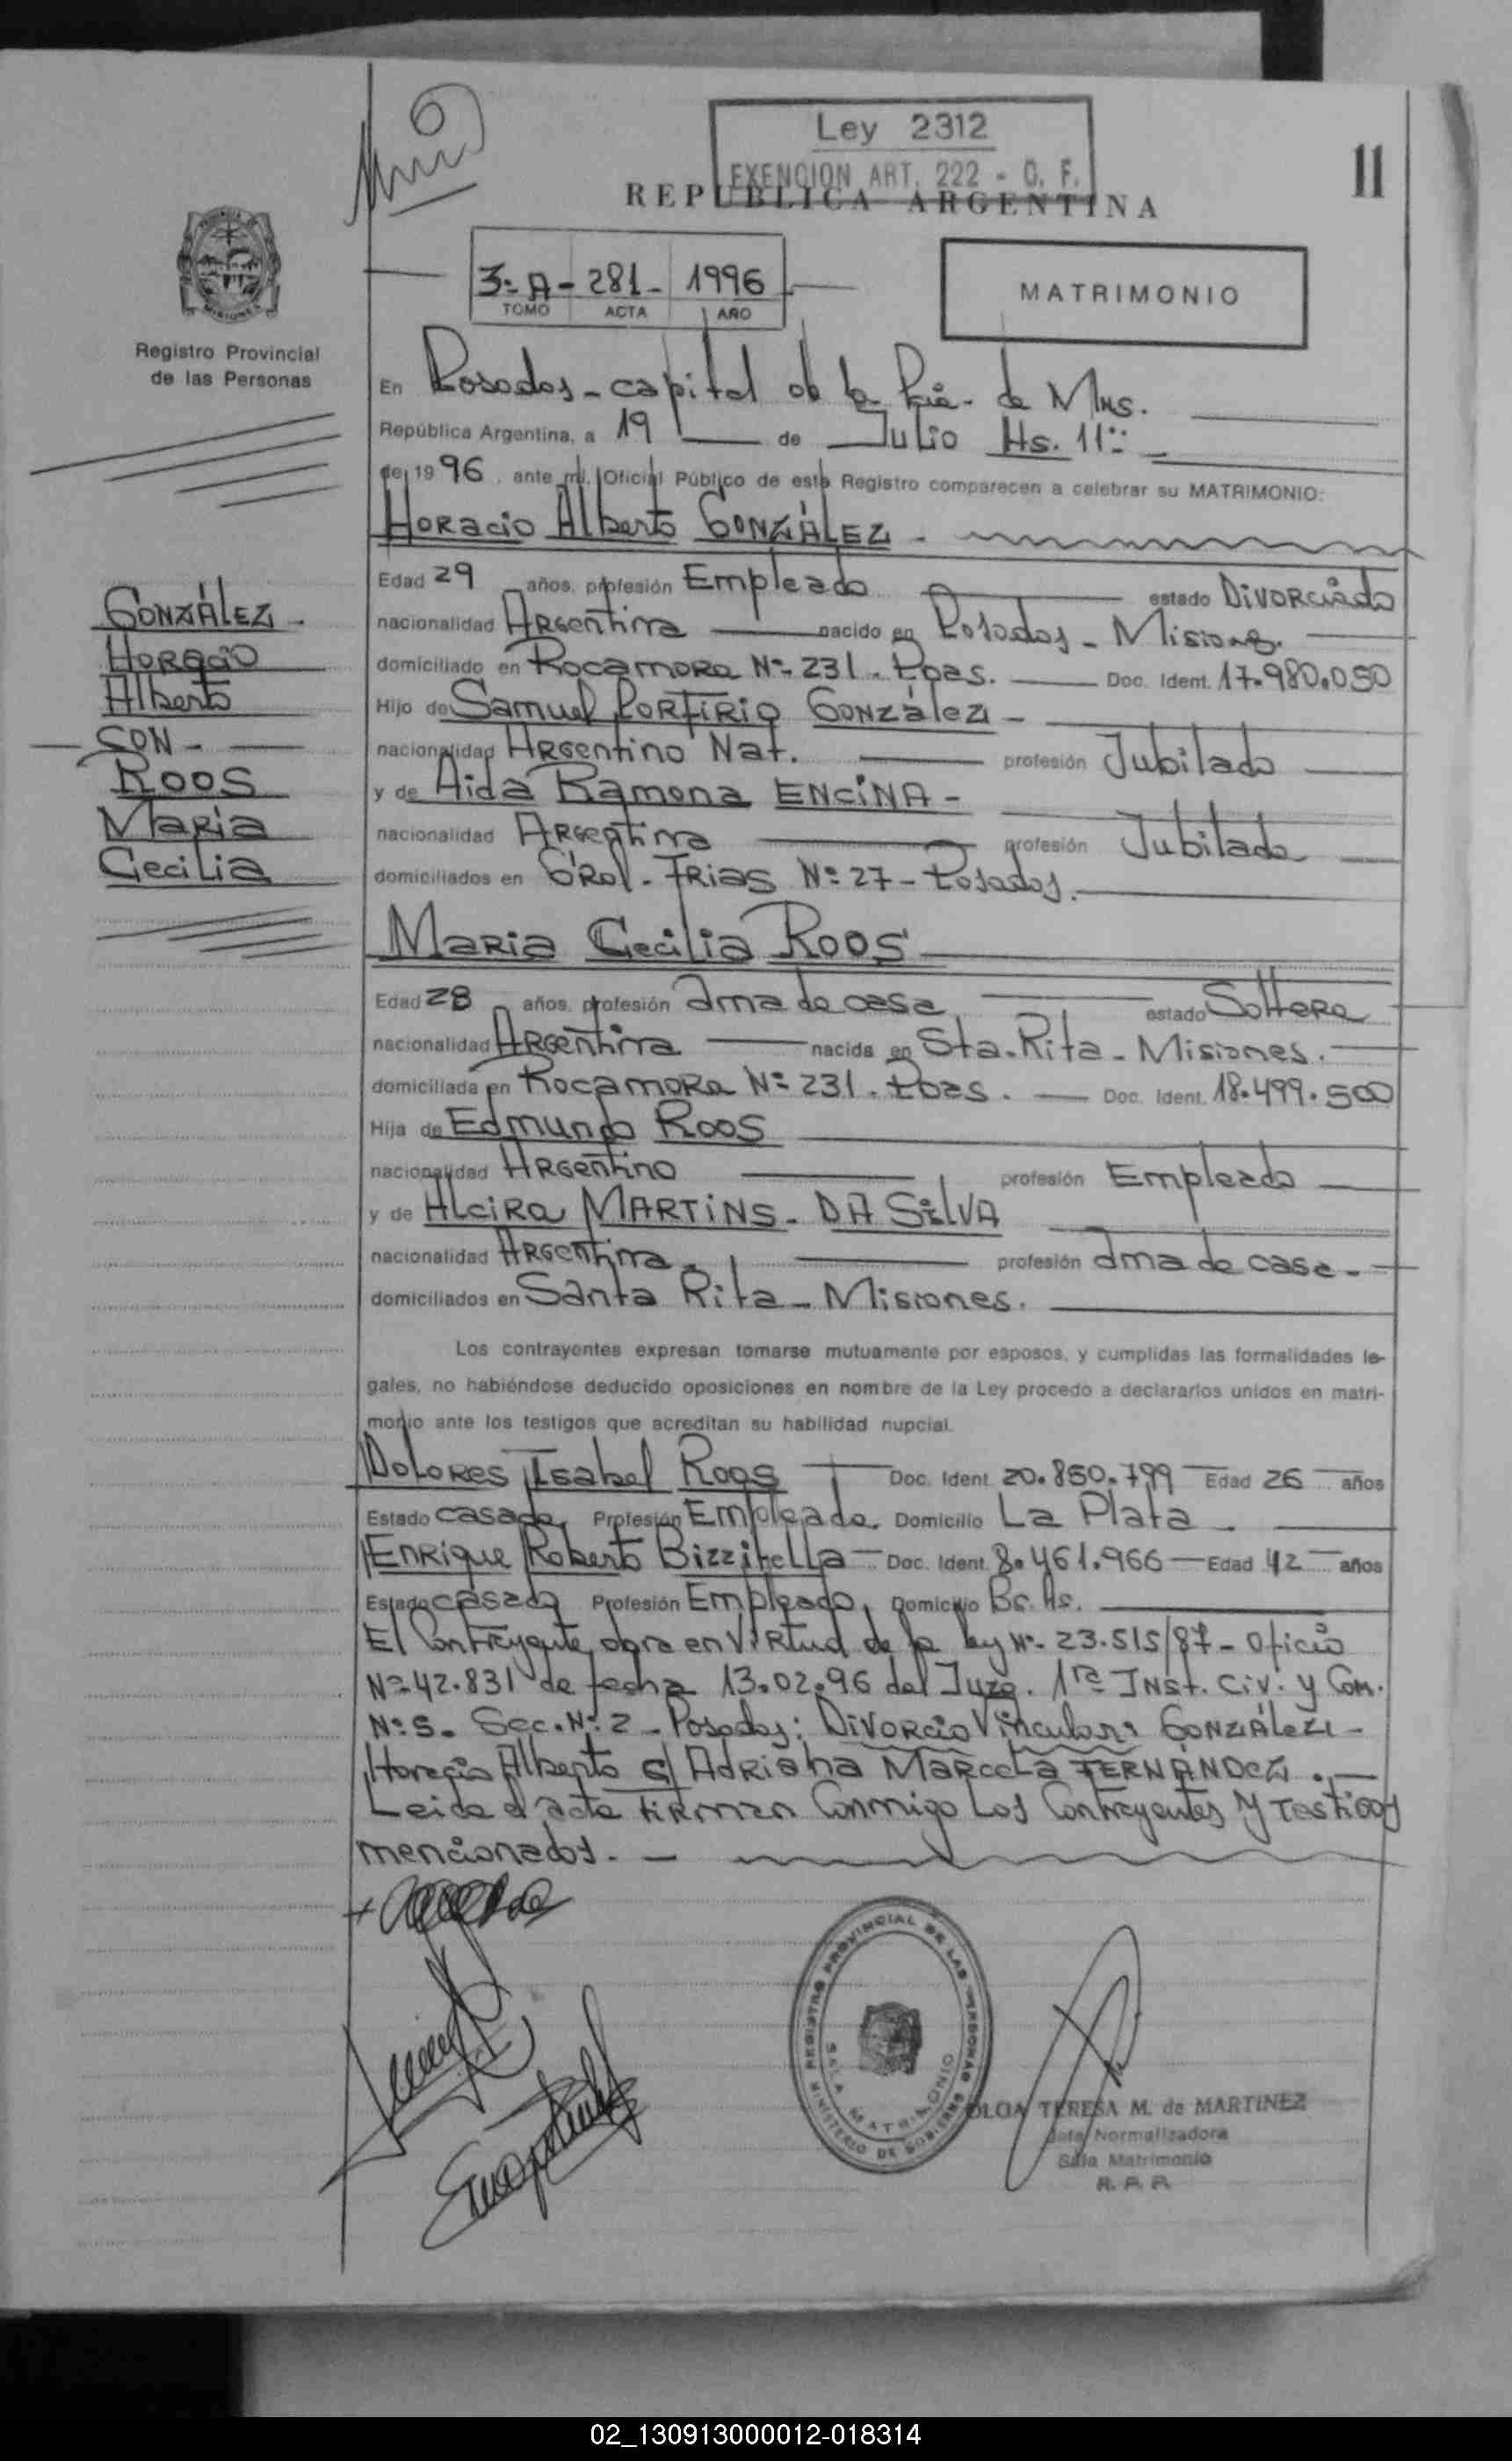 Ley 2312
EXENCION ART. 222 - C. F.
REPUBLICA ARGENTINA
11
3º A - 281 - 1996
TOMO ACTA AÑO
MATRIMONIO
Registro Provincial
de las Personas
En Posadas - capital de la Pcia. de Mns.
República Argentina, a 19 de Julio Hs. 11::
de 1996, ante mi, Oficial Público de este Registro comparecen a celebrar su MATRIMONIO:
Horacio Alberto GONZÁLEZ -
Edad 29 años, profesión Empleado estado Divorciado
nacionalidad Argentina nacido en Posadas - Misiones.
domiciliado en Rocamora Nº 231 - Poas. Doc. Ident. 17.980.050
Hijo de Samuel Porfirio González -
nacionalidad Argentino Nat. profesión Jubilado
y de Aida Ramona ENCINA -
nacionalidad Argentina profesión Jubilada
domiciliados en Gral. Frias Nº 27 - Posadas.
GONZÁLEZ -
Horacio
Alberto
- CON -
ROOS
Maria
Cecilia
Maria Cecilia ROOS
Edad 28 años, profesión ama de casa estado Soltera
nacionalidad Argentina nacida en Sta. Rita - Misiones.
domiciliada en Rocamora Nº 231 - Poas. Doc. Ident. 18.499.500
Hija de Edmundo ROOS
nacionalidad Argentino profesión Empleado
y de Alcira MARTINS - DA SILVA
nacionalidad Argentina. profesión ama de casa -
domiciliados en Santa Rita - Misiones.
Los contrayentes expresan tomarse mutuamente por esposos, y cumplidas las formalidades le-
gales, no habiéndose deducido oposiciones en nombre de la Ley procedo a declararlos unidos en matri-
monio ante los testigos que acreditan su habilidad nupcial.
Dolores Isabel Roos Doc. Ident. 20.850.799 Edad 26 años
Estado casada, Profesión Empleada. Domicilio La Plata -
Enrique Roberto Bizzitella - Doc. Ident. 8.461.966 - Edad 42 años
Estado casado Profesión Empleado, Domicilio Bs. As.
El Contrayente obra en virtud de la ley Nº 23.515/87 - Oficio
Nº 42.831 de fecha 13.02.96 del Juzg. 1ra Inst. Civ. y Com.
Nº 5. Sec. Nº 2 - Posadas: Divorcio Vincular: GONZÁLEZ -
Horacio Alberto c/ Adriana Marcela FERNÁNDEZ. -
Leida el acta firman Conmigo Los Contrayentes y Testigos
mencionados. -
REGISTRO PROVINCIAL DE LAS PERSONAS
SALA MATRIMONIO
MINISTERIO DE GOBIERNO
OLGA TERESA M. de MARTINEZ
Jefa Normalizadora
Sala Matrimonio
R. P. P.
02_130913000012-018314